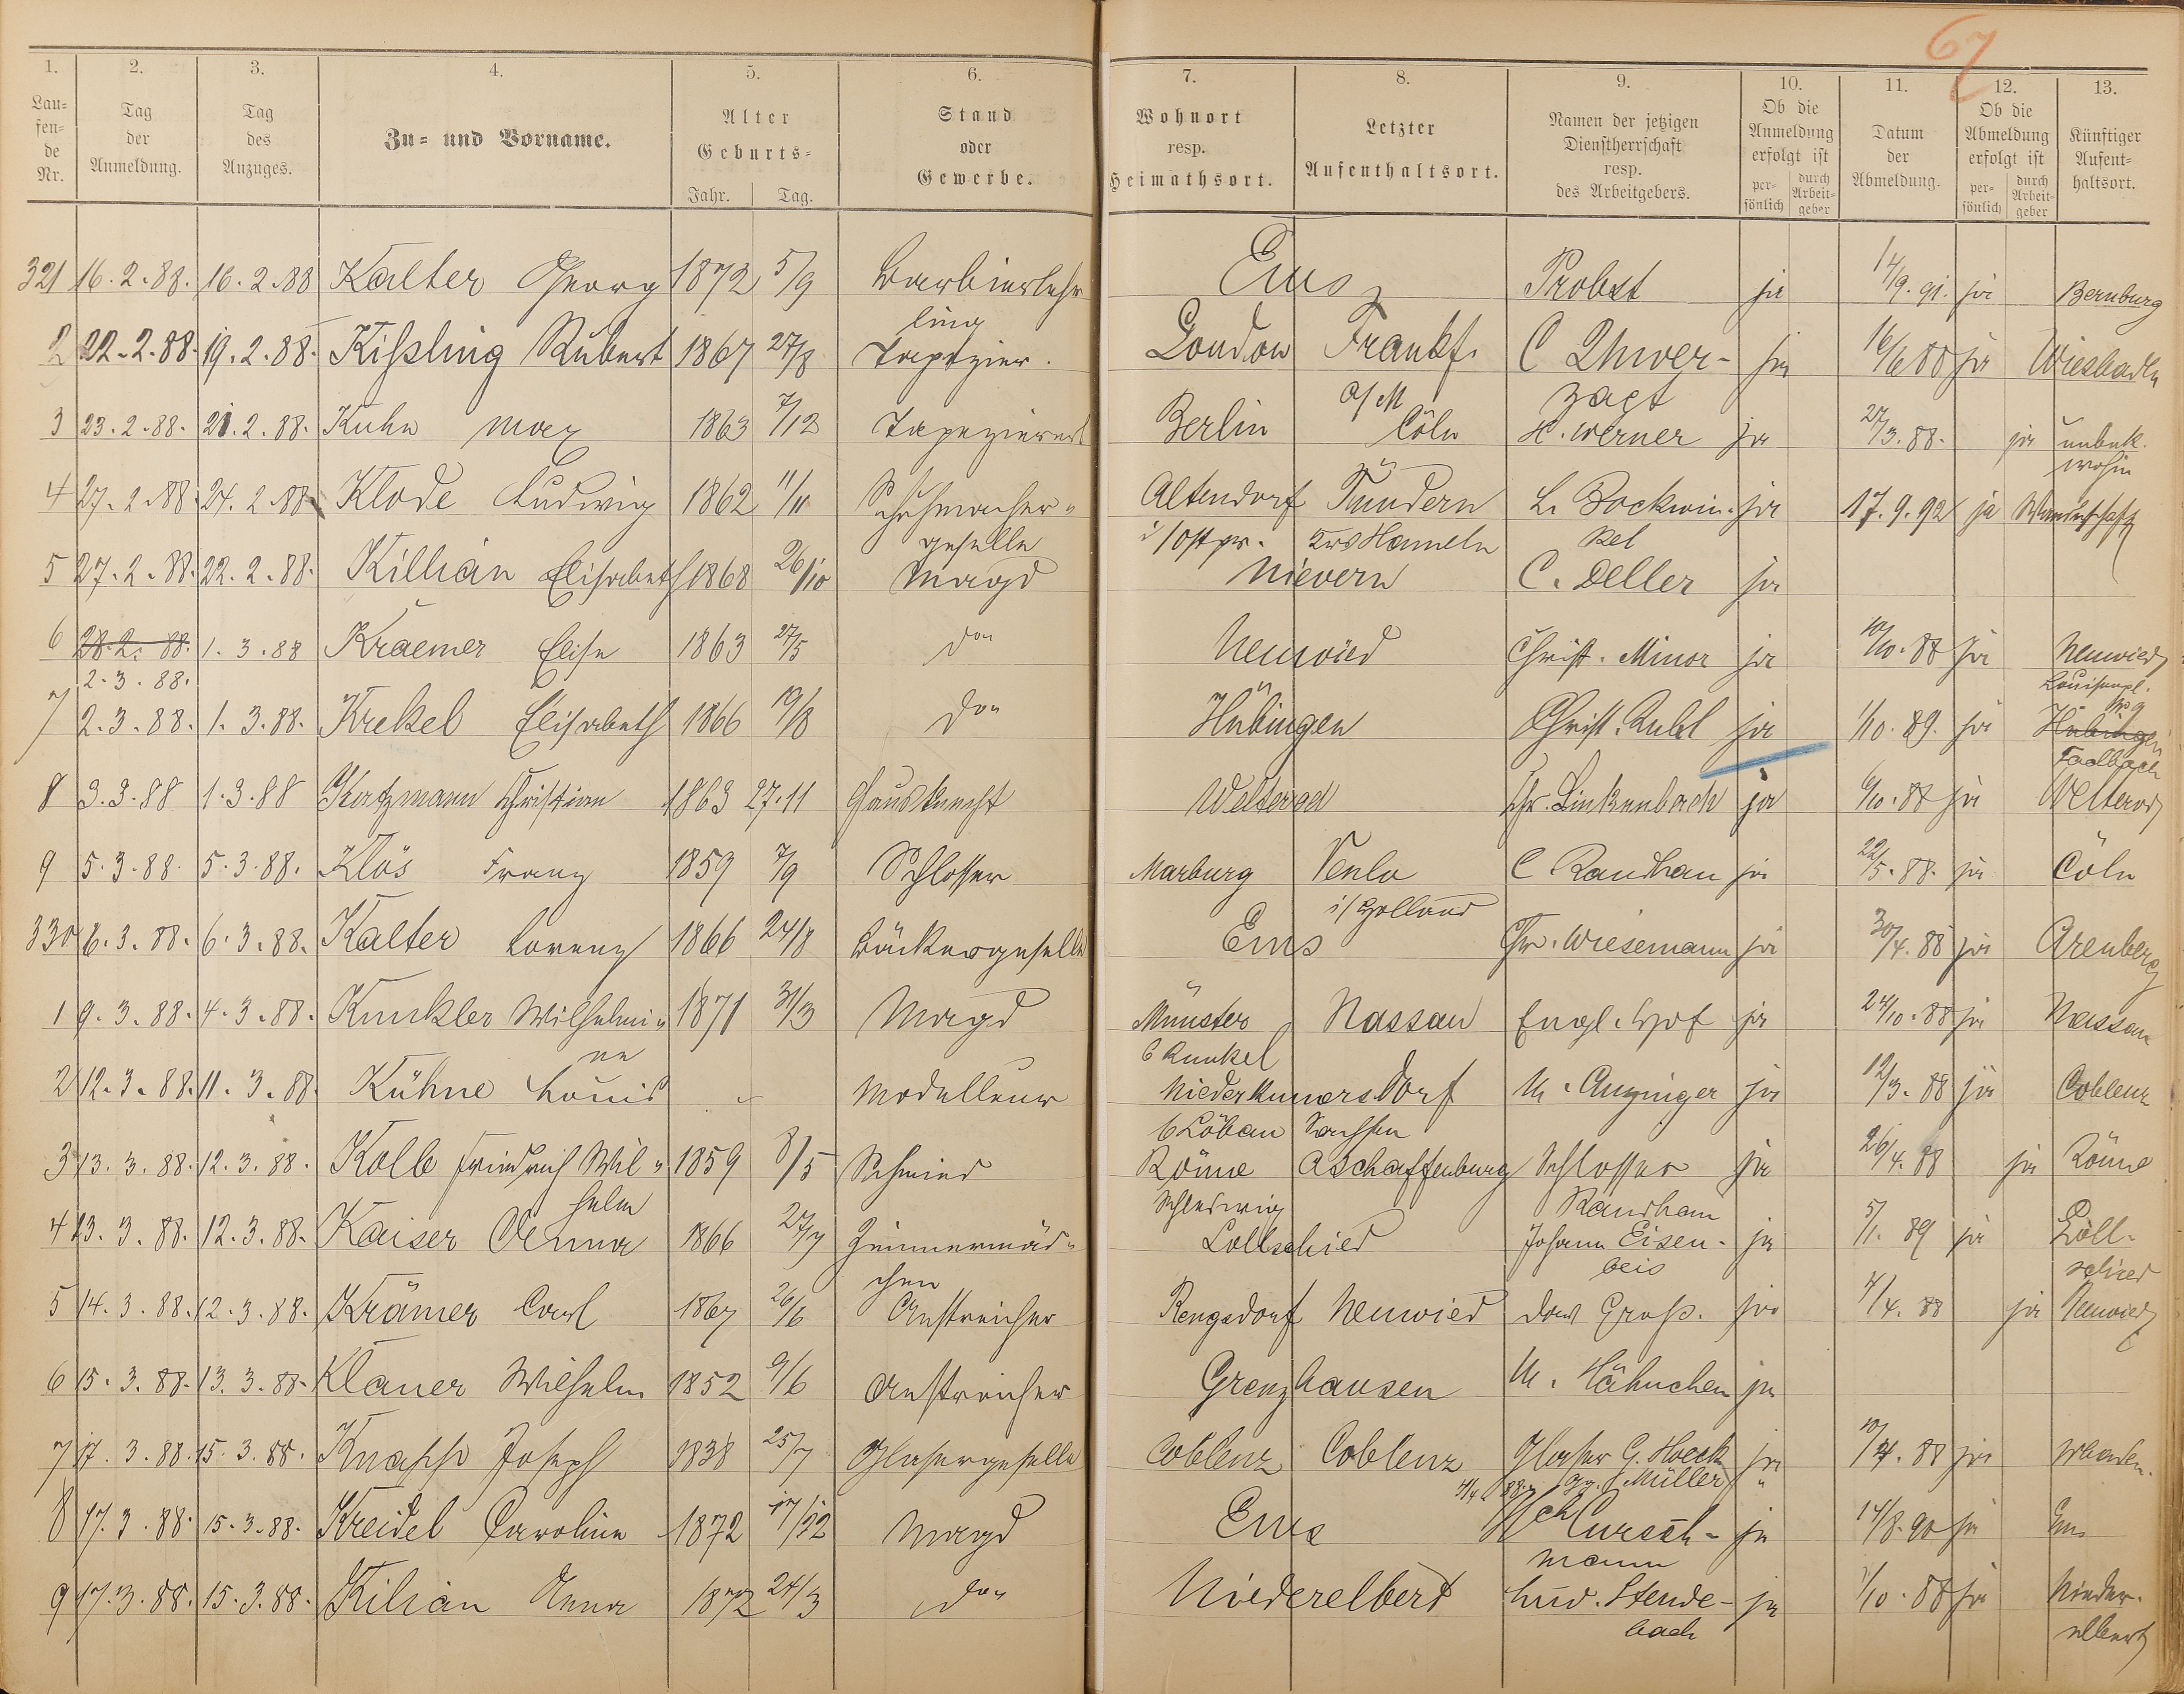 67
1. 2. 3. 4. 5. 6. 7. 8. 9. 10. 11. 12. 13.
Laufende Nr. Tag der Anmeldung. Tag des Anzuges. Zu- und Vorname. Alter Geburts- Jahr. Tag. Stand oder Gewerbe. Wohnort resp. Heimathsort. Letzter Aufenthaltsort. Namen der jetzigen Dienstherrschaft resp. des Arbeitgebers. Ob die Anmeldung erfolgt ist persönlich durch Arbeitgeber Datum der Abmeldung. Ob die Abmeldung erfolgt ist persönlich durch Arbeitgeber Künftiger Aufenthaltsort.
321 16.2.88. 16.2.88 Kalter Georg 1872 5/9 Barbierlehr Ems Probst ja 14/9.91. ja Bernburg
ling
2 22.2.88. 19.2.88. Kißling Rubert 1867 27/8 Tapezier. London Frankf. C Thwer- ja 16/6 88 ja Wiesbaden
a/M zagt
3 23.2.88. 21.2.88. Kuhn Max 1863 7/12 Tapezierer Berlin Cöln H. Werner ja 27/3.88. ja unbek.
wohin
4 27.2.88 24.2.88 Klode Ludwig 1862 11/11 Schuhmacher- Altendorf Tündern L. Bockwin- ja 17.9.92 ja Wanderschaft
geselle i/Ostpr. Krs Hameln kel
5 27.2.88. 22.2.88. Killian Elisabeth 1868 26/10 Magd Nievern C. Deller ja
6 28.2.88. 1.3.88 Kraemer Elise 1863 27/5 do Neuwied Christ. Minor ja 10/10.88 ja Neuwied
2.3.88. Louisenpl.
No 9
7 2.3.88. 1.3.88. Krekel Elisabeth 1866 19/8 do Hübingen Christ. Ruhl ja 1/10.89. ja Hübingen
Fachbach
8 3.3.88 1.3.88 Katzmann Christian 1863 27.11 Hausknecht Welterod Chr. Linkenbach ja 6/10.88 ja Welterod
9 5.3.88. 5.3.88. Klös Franz 1859 7/9 Schlosser Marburg Venlo C Randhan ja 22/5.88. ja Cöln
i/Holland
330 6.3.88. 6.3.88. Kalter Lorenz 1866 24/8 Bäckergeselle Ems Chr. Wiesemann ja 30/4.88 ja Arenberg
1 9.3.88. 4.3.88. Kunkler Wilhelmi- 1871 31/3 Magd Münster Nassau Engl. Hof ja 24/10.88 ja Nassau
ne b Runkel
2 12.3.88. 11.3.88. Kühne Louis Modelleur Niederkunersdorf M. Anzinger ja 12/3.88 ja Coblenz
b Löbau Sachsen
3 13.3.88. 12.3.88. Kolb Friedrich Wil- 1859 8/5 Schmied Rönne Aschaffenburg Schlosser ja 26/4.88 ja Rönne
helm Schleswig Randhan
4 13.3.88. 12.3.88. Kaiser Anna 1866 27/7 Zimmermäd- Lollschied Johann Eisen- ja 5/1.89 ja Loll-
chen beis schied
5 14.3.88. 12.3.88. Krämer Carl 1867 26/6 Anstreicher Rengsdorf Neuwied Groß. ja 4/4.88 ja Neuwied
6 15.3.88. 13.3.88. Klauer Wilhelm 1852 9/6 Anstreicher Grenzhausen M. Hähnchen ja
7 17.3.88. 15.3.88. Knapp Joseph 1838 25/7 Glasergeselle Coblenz Coblenz Glaser G. Hoeck ja 10/4.88 ja
4/4 88. Müller "
8 17.3.88. 15.3.88. Kreidel Caroline 1872 17/12 Magd Ems Hch Cursch- ja 14/8.90 ja Ems
mann
9 17.3.88. 15.3.88. Kilian Anna 1872 24/3 do Niederelbert Lud. Stende- ja 1/10.88 ja Nieder-
bach elbert